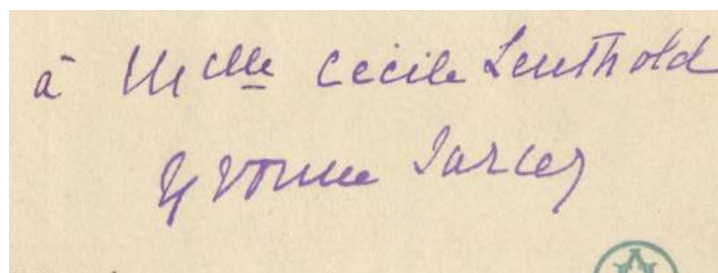 à Melle Cécile Leuthold
Yvonne Sarcey